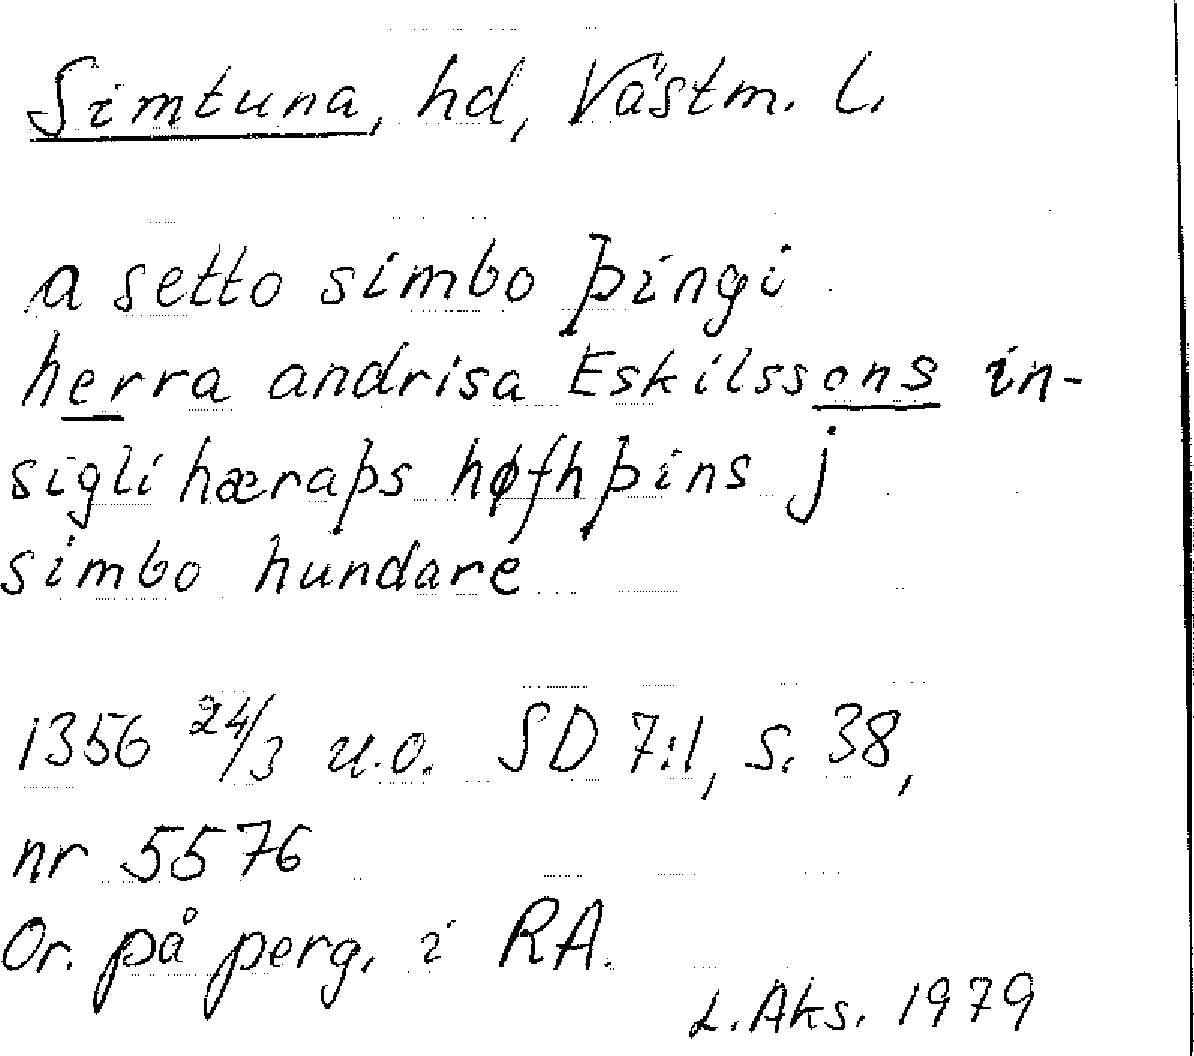 Simtuna, hd, Västm. l.
a setto simbo þingi
herra andrisa Eskilssons in-
sigli hæraþs høfhþins j
simbo hundare
1356 24/3 u.o. SD 7:1, s. 38,
nr 5576
Or. på perg. i RA.
L. Aks. 1979